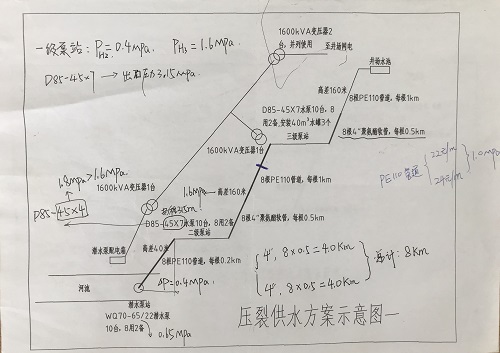 一级泵站: P_H2=0.4mpa, P_H3=1.6mpa
D85-45×7 → 出口压力3.15mpa
1600kVA变压器2
台，并列使用
至井场网电
井场水池
高差160米
8根PE110管道，每根1km
D85-45X7水泵10台，8
用2备，安装40m³水罐3个
1600kVA变压器1台
三级泵站
8根4"聚氨酯软管，每根0.5km
PE110管道
22元/m
24元/m
1.0mpa
1.8mpa>1.6mpa
1600kVA变压器1台
1.6mpa
高差160米
8根PE110管道，每根1km
D85-45×4
315m
D85-45X7水泵10台，8用2备
8根4"聚氨酯软管，每根0.5km
二级泵站
潜水泵配电箱
高差40米
8根PE110管道，每根0.2km
4", 8×0.5=4.0Km
4", 8×0.5=4.0Km
总计: 8Km
河池
ΔP=0.4mpa
潜水泵站
WQ70-65/22潜水泵
10台，8用2备
0.65mpa
压裂供水方案示意图一